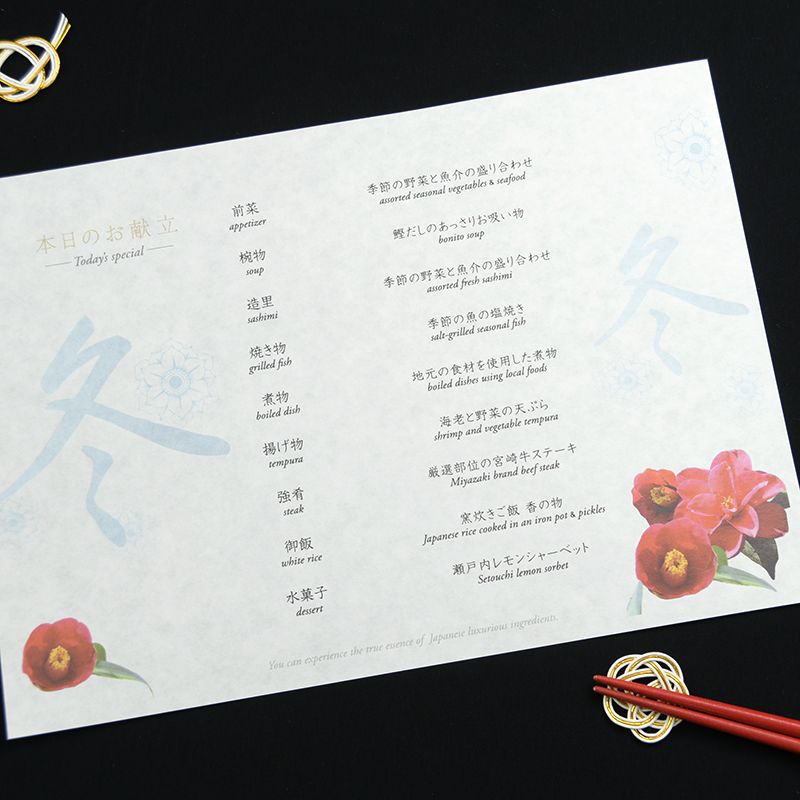 本日のお献立
Today's special
冬
冬
前菜
appetizer
季節の野菜と魚介の盛り合わせ
assorted seasonal vegetables & seafood
椀物
soup
鰹だしのあっさりお吸い物
bonito soup
造里
sashimi
季節の野菜と魚介の盛り合わせ
assorted fresh sashimi
焼き物
grilled fish
季節の魚の塩焼き
salt-grilled seasonal fish
煮物
boiled dish
地元の食材を使用した煮物
boiled dishes using local foods
揚げ物
tempura
海老と野菜の天ぷら
shrimp and vegetable tempura
強肴
steak
厳選部位の宮崎牛ステーキ
Miyazaki brand beef steak
御飯
white rice
窯炊きご飯 香の物
Japanese rice cooked in an iron pot & pickles
水菓子
dessert
瀬戸内レモンシャーベット
Setouchi lemon sorbet
You can experience the true essence of Japanese luxurious ingredients.